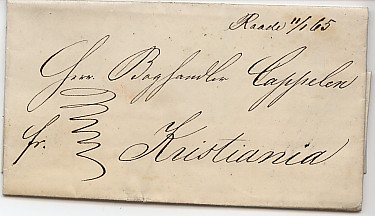 Raade 11/1 65
Herr Boghandler Cappelen
fr. Kristiania